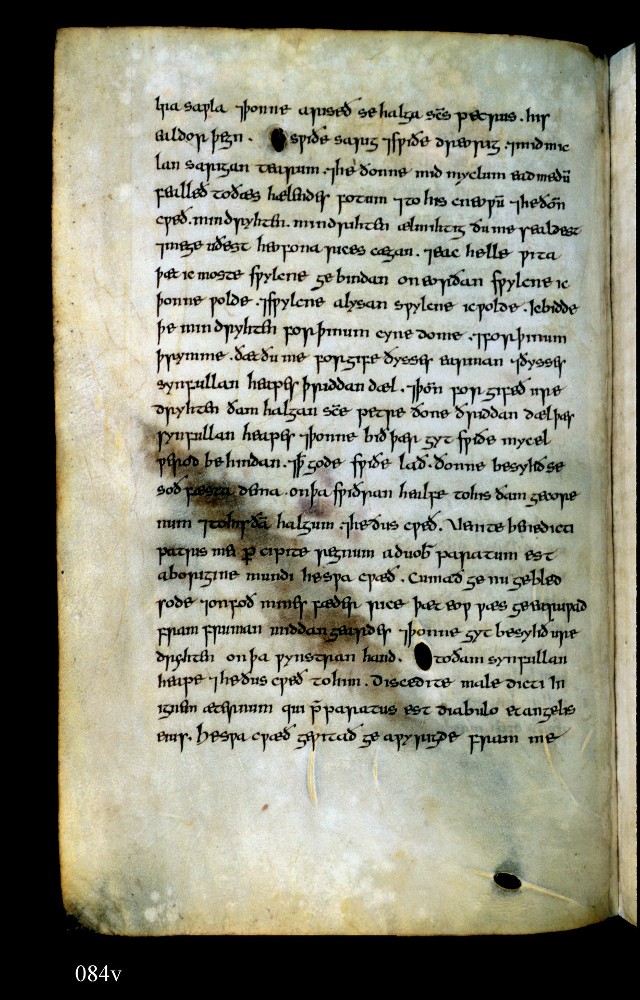 hira sawla ⁊þonne arised se halga scs petrus . his
ealdorþegn . swiðe sarig ⁊swiðe dreorig ⁊mid mic
lan sarigan tearum . ⁊he donne mid myclum eadmedū
fealled todæs hælendes fotum ⁊to his cneowū ⁊hedoń
cƿed . min dryhten . min drihten ælmihtig ðu me sealdest
⁊mege uðest heofona rices cægan . ⁊eac helle ƿita
þæt ic moste sƿylcne gebindan on eorðan sƿylcne ic
þonne ƿolde . ⁊sƿylcne alysan sƿylcne ic ƿolde . Ic bidde
þe min dryhten for þinum cynedome . ⁊for þinum
þrymme . ðæt ðu me forgife ðysses earman ⁊ðysses
synfullan heapes þriddan dæl . ⁊þoń forgifed ure
dryhten ðam halgan scē petre ðone ðriddan dæl þæs
synfullan heapes ⁊þonne bið þær gyt sƿiðe mycel
ƿerod behindan . ⁊þ gode sƿiðe lað . ðonne besyhð se
soð fæsta dema . on þa sƿiðran healfe to his ðam gecore
num ⁊to his ðā halgum . ⁊he ðus cƿeð . Uenite benedicti
patris mei p̄cipite regnum a duob paratum est
ab origine mundi he sƿa cƿeð . Cumað ge nu gebled
sode ⁊on foð mines fæder rice þæt eoƿ ƿæs gegearƿad
fram fruman middangeardes ⁊þonne gyt besyhð ure
drihten on þa ƿynstran hand . to ðam synfullan
heape ⁊he ðus cƿeð to him . Discedite maledicti in
ignem æternum qui p̄paratus est diabulo et angelis
eius . He sƿa cƿæð geƿitað ge aƿyrigde fram me
084v